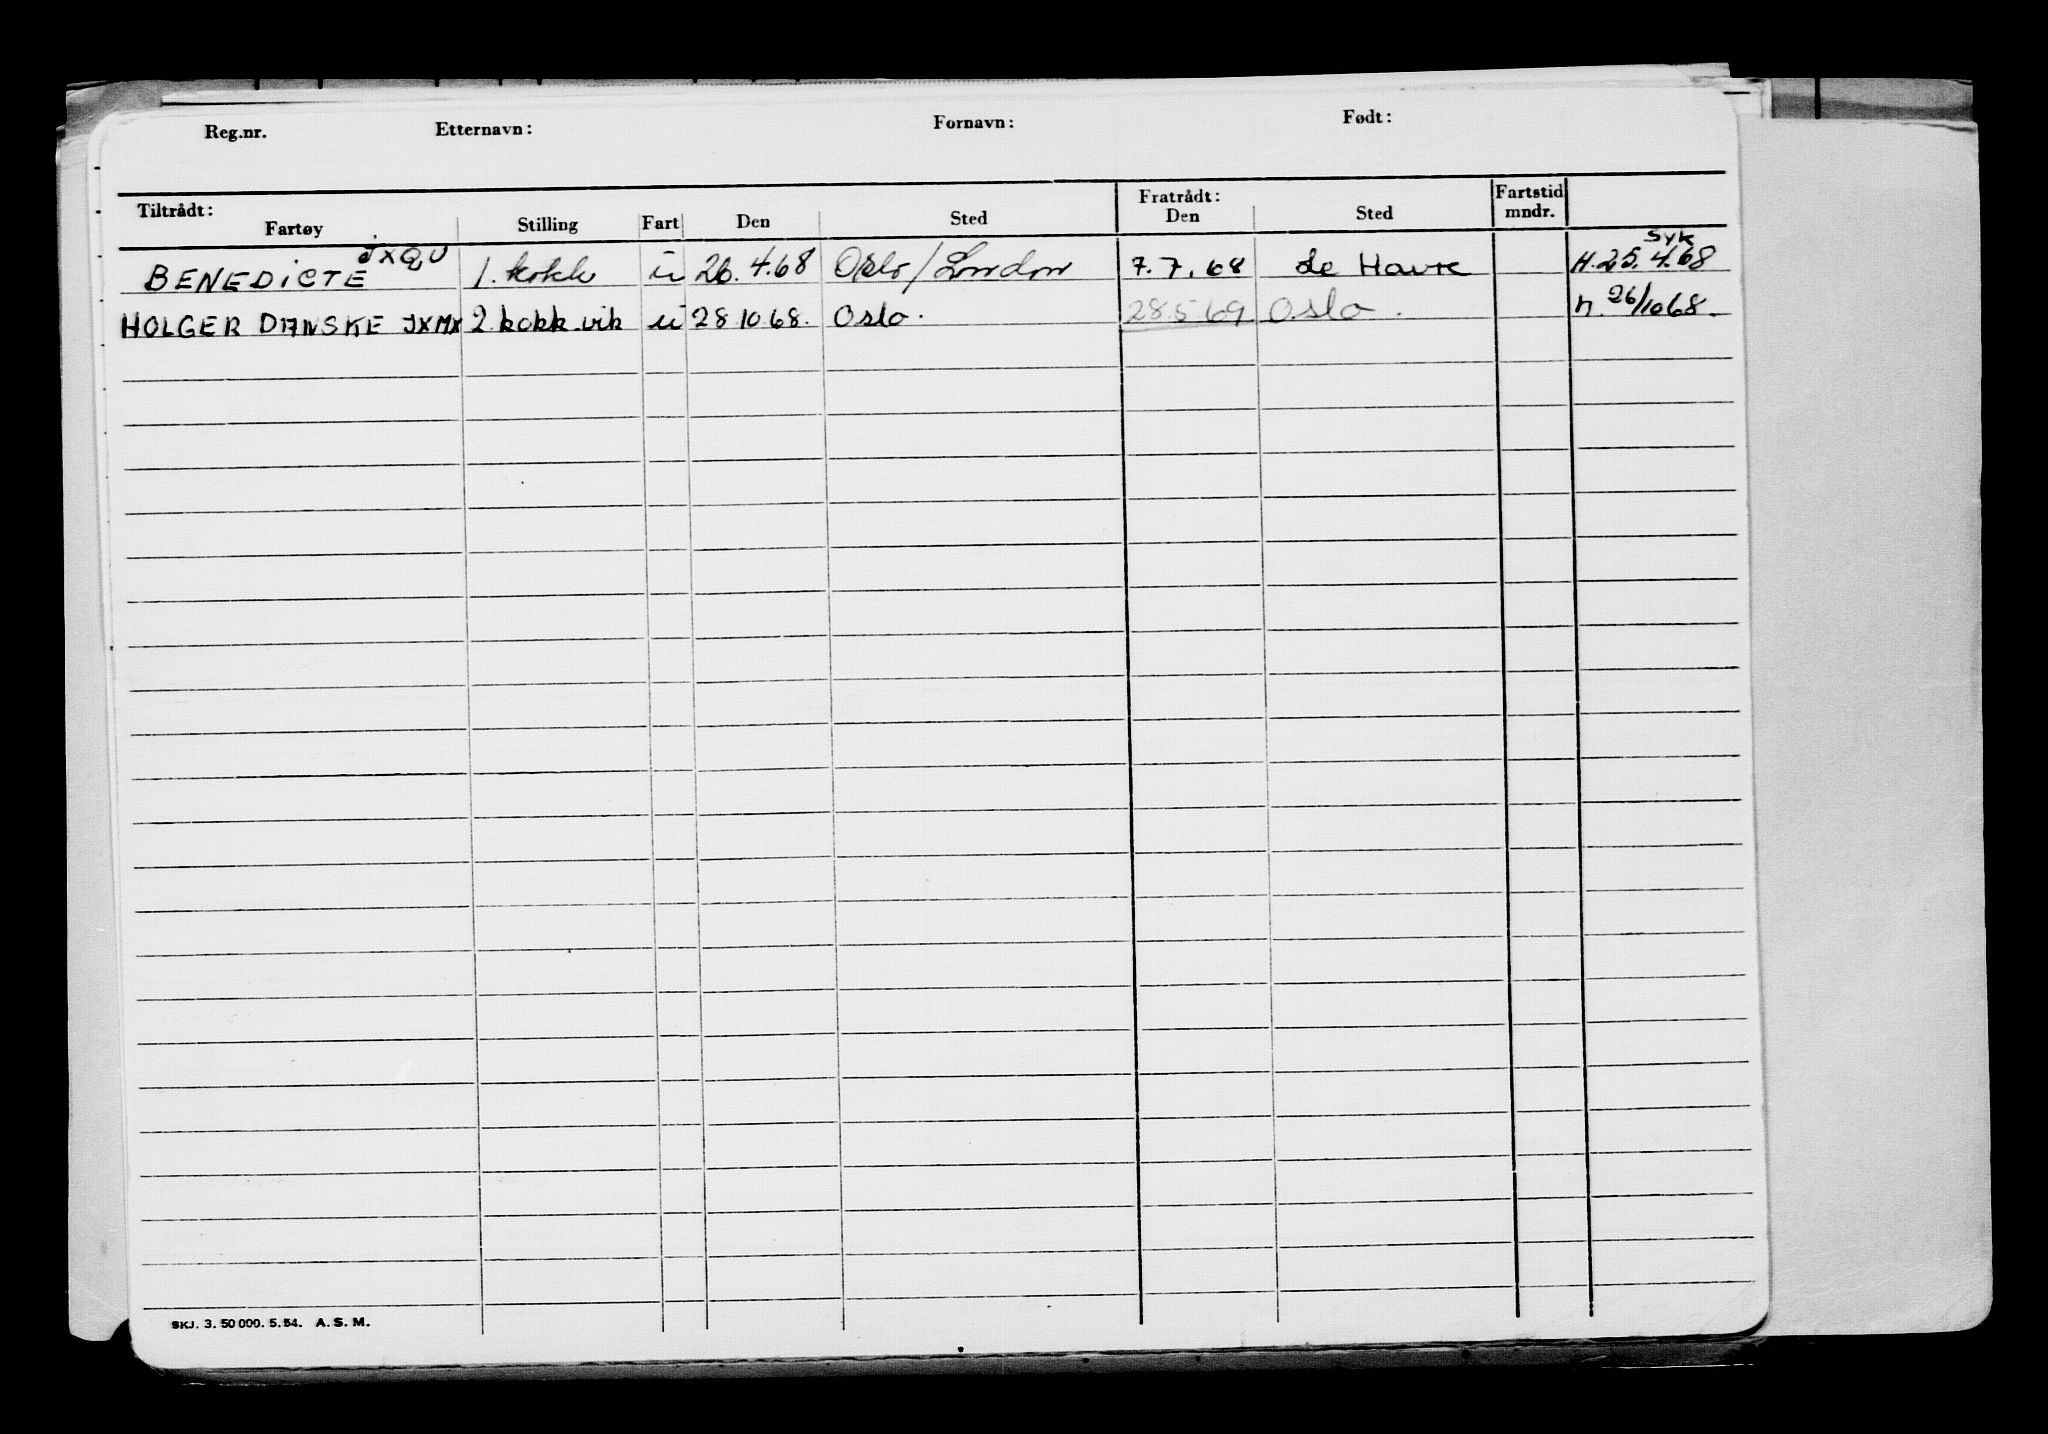 Reg.nr. Etternavn: Fornavn: Født:
Tiltrådt: Fratrådt: Fartstid
Fartøy Stilling Fart Den Sted Den Sted mndr.
JXQU SYK
BENEDICTE 1. kokk u 26.4.68 Oslo/London 7.7.68 Le Havre H.25.4.68
HOLGER DANSKE JXMX 2. kokk vik u 28.10.68. Oslo. 28.5.69 Oslo. h. 26/10 68.
SKJ. 3. 50 000. 5. 54. A. S. M.